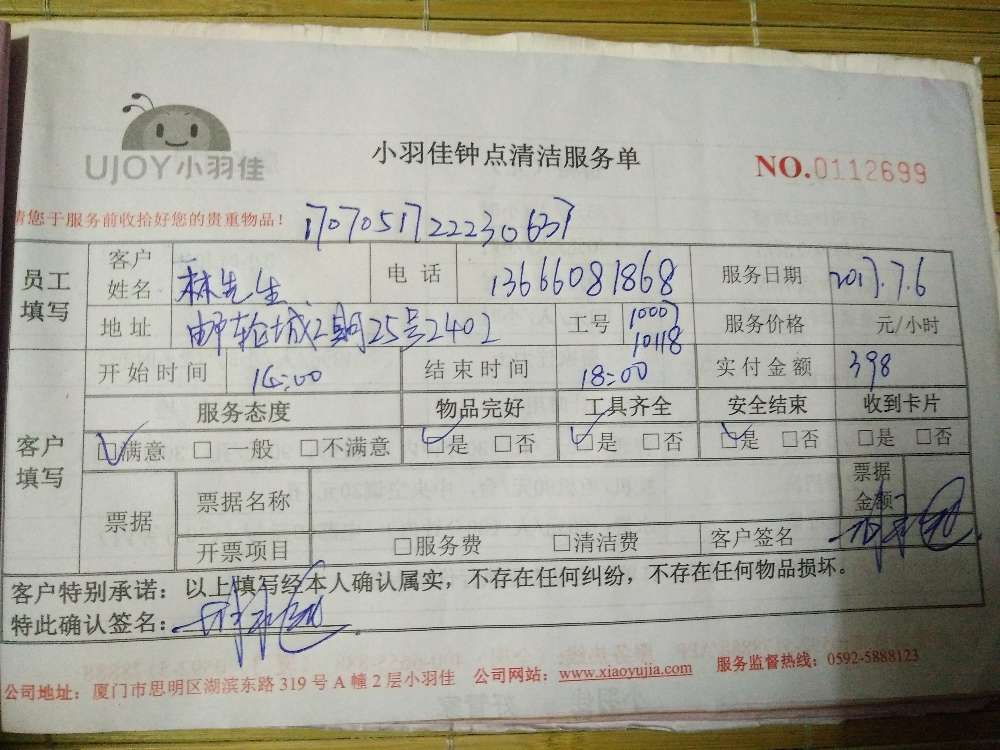 UJOY小羽佳
小羽佳钟点清洁服务单
NO.0112699
请您于服务前收拾好您的贵重物品！
1707051722230637
员工填写 客户姓名 林先生 电话 13666081868 服务日期 2017.7.6
地址 邮轮城2期25号2402 工号 10007 10118 服务价格 元/小时
客户填写 开始时间 14:00 结束时间 18:00 实付金额 398
服务态度 物品完好 工具齐全 安全结束 收到卡片
☑满意 □一般 □不满意 ☑是 □否 ☑是 □否 ☑是 □否 □是 □否
票据 票据名称 票据金额
开票项目 □服务费 □清洁费 客户签名
客户特别承诺：以上填写经本人确认属实，不存在任何纠纷，不存在任何物品损坏。
特此确认签名：
公司地址：厦门市思明区湖滨东路319号A幢2层小羽佳 公司网站：www.xiaoyujia.com 服务监督热线：0592-5888123